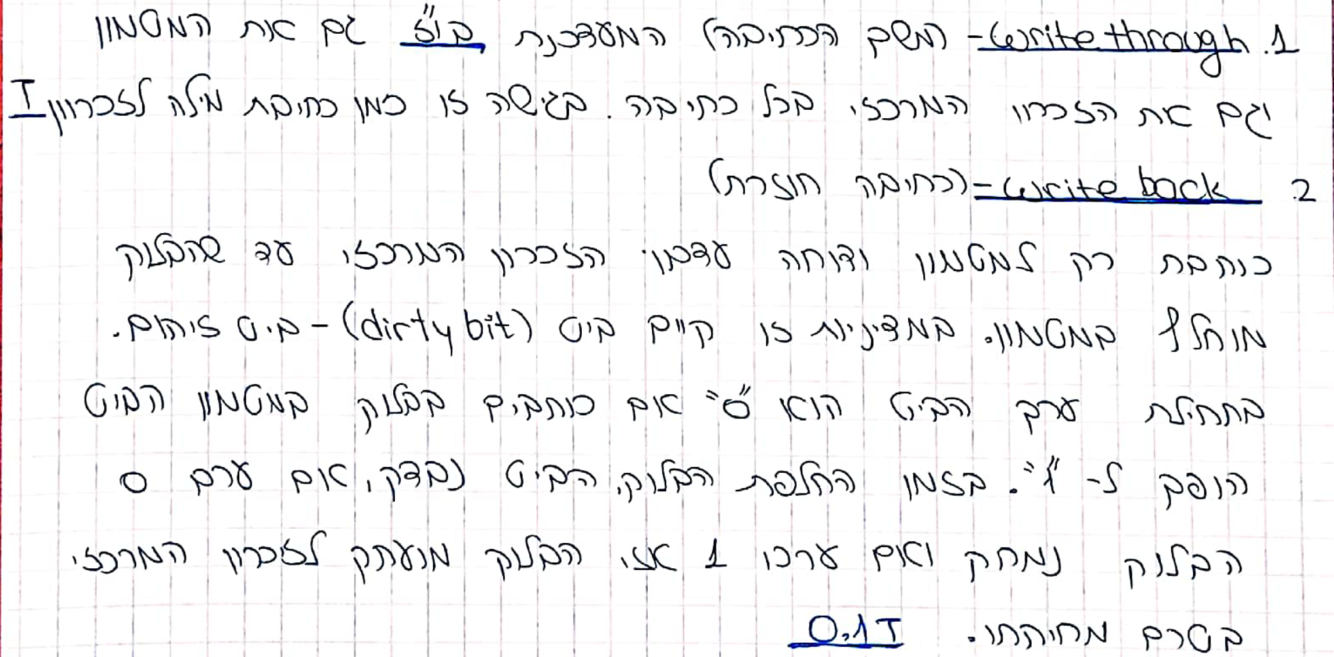 1. Write through - (משך הכתיבה) המעדכנת בו"ז גם את המטמון
וגם את הזכרון המרכזי בכל כתיבה. בגישה זו זמן כתיבת מילה לזכרון T
2 write back - (כתיבה חוזרת)
כותבת רק למטמון ודוחה עדכון הזכרון המרכזי עד שהבלוק
מוחלף במטמון. במדיניות זו קיים ביט (dirty bit) - ביט זיהום.
בתחילת ערך הביט הוא "0" אם כותבים בבלוק במטמון הביט
הופך ל- "1". בזמן החלפת הבלוק, הביט נבדק, אם ערכו 0
הבלוק נמחק ואם ערכו 1 אזי הבלוק מועתק לזכרון המרכזי
בטרם מחיקתו. 0.1T